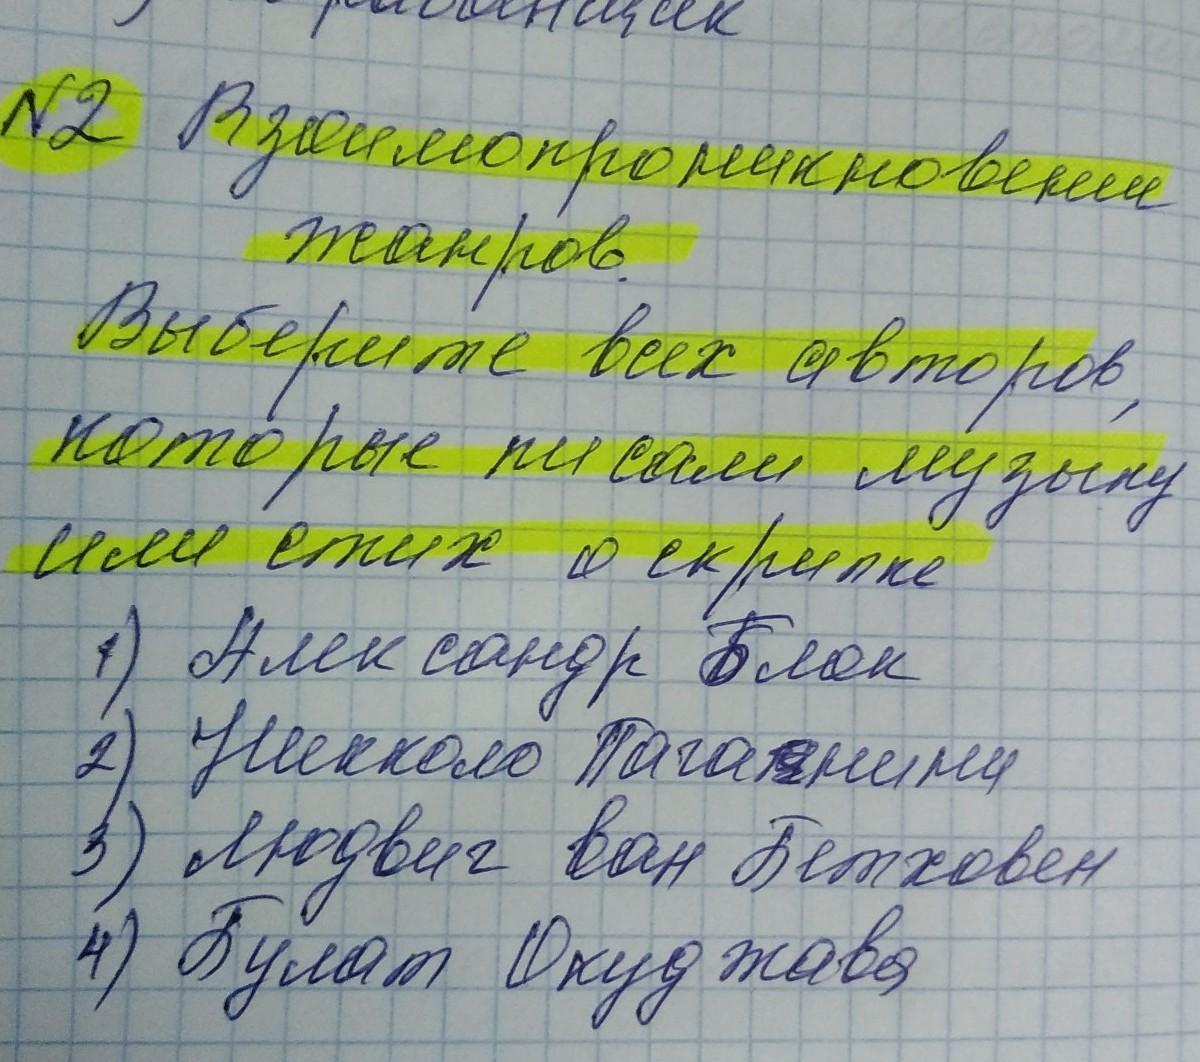 №2 Взаимопроникновении
жанров.
Выберите всех авторов,
которые писали музыку
или стих о скрипке
1) Александр Блок
2) Никколо Паганини
3) Людвиг ван Бетховен
4) Булат Окуджава